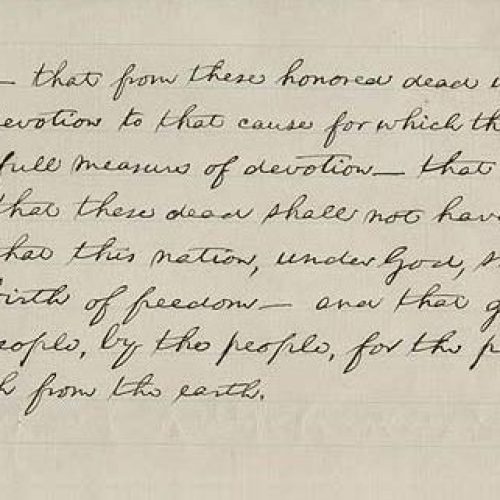 — that from these honored dead
evotion to that cause for which th
full measure of devotion — that
that these dead shall not hav
hat this nation, under God, s
birth of freedom — and that g
eople, by the people, for the p
h from the earth.